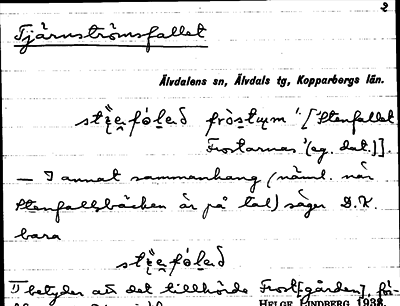 2
Tjärnströmsfallet
Älvdalens sn, Älvdals tg, Kopparbergs län.
['Stenfallet
Frostarnas' (eg. dat.)].
— I annat sammanhang (näml. när
Stenfallsbäcken är på tal) säger D.K.
bara
1) betyder att det tillhörde Frost[gården],
HELGE LINDBERG 1938.